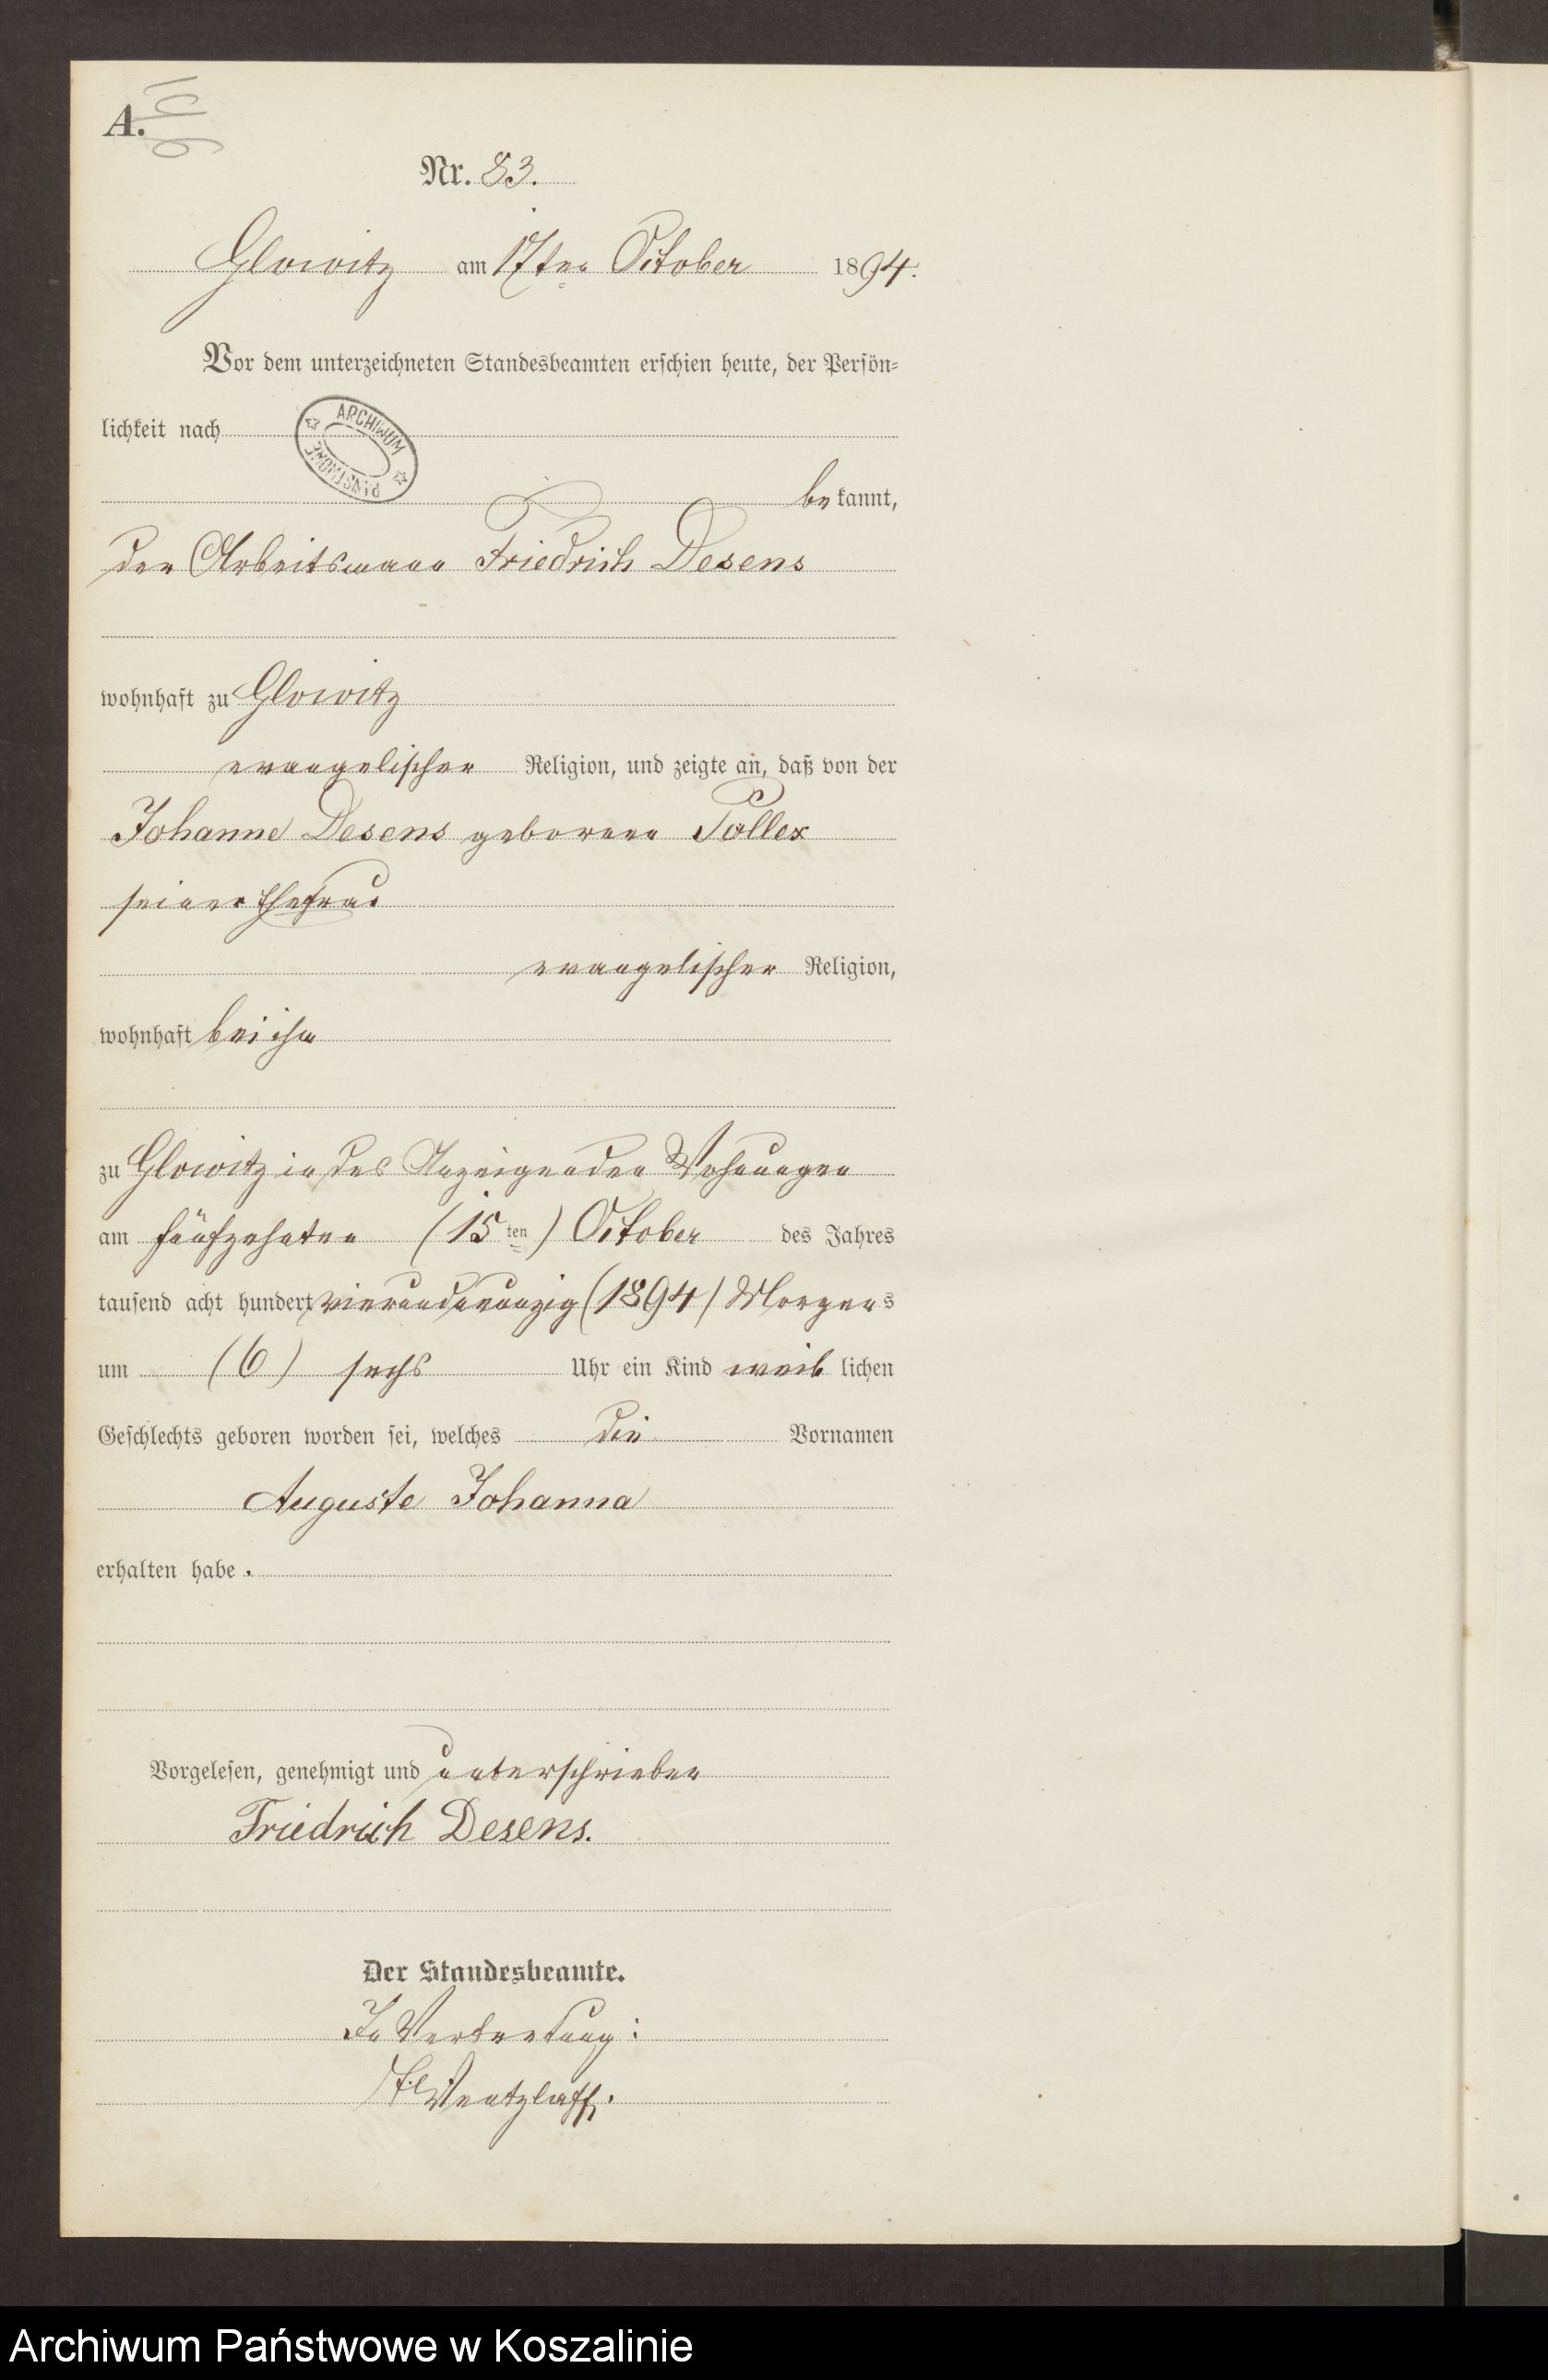 A.
Nr. 83.
Glowitz am 17ten October 1894.
Vor dem unterzeichneten Standesbeamten erschien heute, der Persön-
lichkeit nach
ARCHIWUM
PAŃSTWOWE
bekannt,
der Arbeitsmann Friedrich Desens
wohnhaft zu Glowitz
evangelischer Religion, und zeigte an, daß von der
Johanne Desens geborene Pollex
seiner Ehefrau
evangelischer Religion,
wohnhaft bei ihm
zu Glowitz in des Anzeigenden Wohnungen
am fünfzehnten (15ten) October des Jahres
tausend acht hundert vierundneunzig (1894) Morgens
um (6) sechs Uhr ein Kind weiblichen
Geschlechts geboren worden sei, welches die Vornamen
Auguste Johanna
erhalten habe.
Vorgelesen, genehmigt und unterschrieben
Friedrich Desens.
Der Standesbeamte.
In Vertretung:
Wentzlaff.
Archiwum Państwowe w Koszalinie